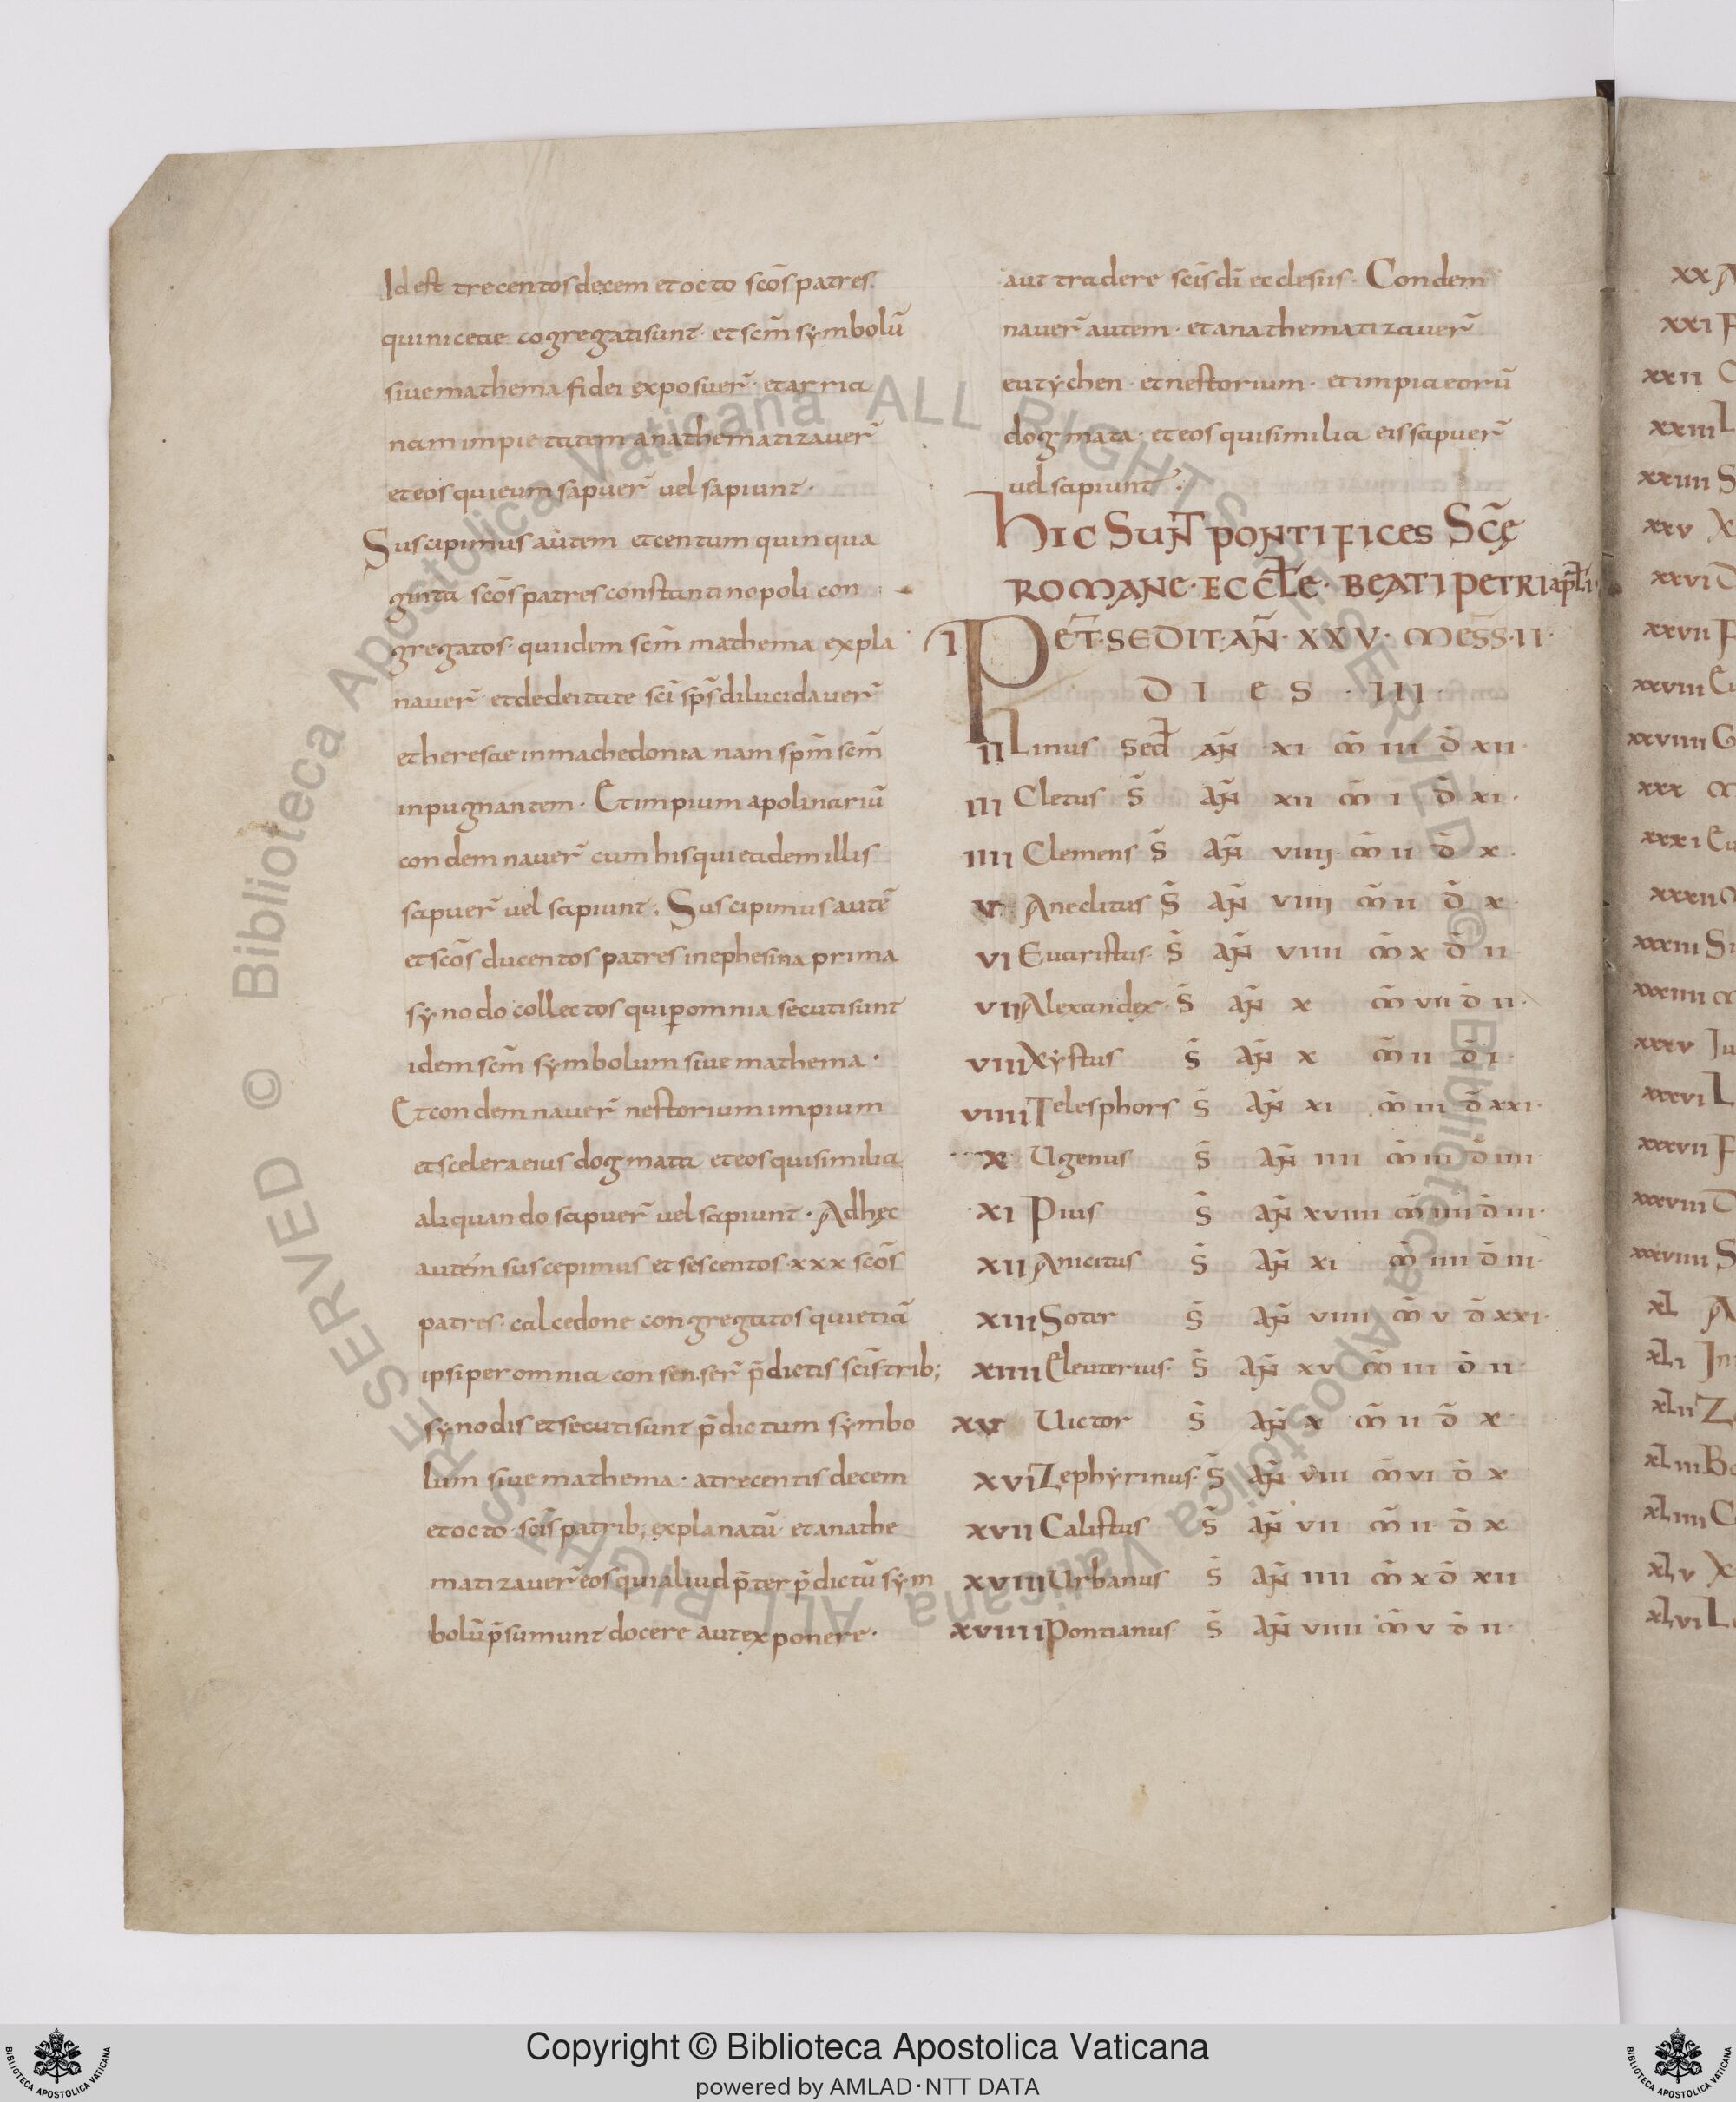 Id est trecentos decem et octo scōs patres.
qui niceae cogregati sunt · et scm̄ symbolū
sive mathema fidei exposuer̄ · et arria
nam impietatem anathematizaver̄
et eos qui eum sapuer̄ vel sapiunt ·
Suscipimus autem et centum quinqua
ginta scōs patres constantinopoli con
gregatos · qui idem scm̄ mathema expla
naver̄ et de deitate scī sp̄s dilucidaver̄
et heresae in machedonia nam sp̄m scm̄
inpugnantem · Et impium apolinariū
condemnaver̄ cum his qui eadem illis
sapuer̄ vel sapiunt. Suscipimus autē
et scōs ducentos patres in ephesina prima
synodo collectos qui p̲ omnia secuti sunt
idem scm̄ symbolum sive mathema ·
Et condemnaver̄ nestorium impium
et scelera eius dogmata et eos qui similia
aliquando sapuer̄ vel sapiunt · Ad hęc
autem suscepimus et sescentos · xxx scōs
patres · calcedone congregatos qui etiā
ipsi per omnia consenser̄ p̄dictis scīs trib;
synodis et secuti sunt p̄dictum symbo
lum sive mathema · a trecentis decem
et octo scīs patrib; explanatū et anathe
matizaver̄ eos qui aliud p̄ter p̄dictū sym
bolū p̄sumunt docere aut exponere ·
aut tradere scīs dī ecclesiis · Condem
naver̄ autem · et anathematizaver̄
eutychen · et nestorium · et impia eorū
dogmata · et eos qui similia eis sapuer̄
vel sapiunt ·
HIC SUNT PONTIFICES SC̄Ę
ROMANE · ECCL̄E · BEATI PETRI AP̄LI
I PET̄ · SEDIT · AN̄ · XXV · MES̄S · II ·
DIES · III ·
II Linus sed̄ an̄ xi m̄ iii d̄ xii ·
III Cletus s̄ an̄ xii m̄ i d̄ xi ·
IIII Clemens s̄ an̄ viiii · m̄ ii d̄ x ·
V Aneclitus s̄ an̄ viiii m̄ ii d̄ x ·
VI Euaristus · s̄ an̄ viiii m̄ x d̄ ii ·
VII Alexander · s̄ an̄ x m̄ vii d̄ ii ·
VIII Xystus s̄ an̄ x m̄ ii d̄ i ·
VIIII Telesphors s̄ an̄ xi m̄ iii d̄ xxi ·
X Ugenus s̄ an̄ iiii m̄ iii d̄ iiii
XI Pius s̄ an̄ xviiii m̄ iiii d̄ iii ·
XII Anicitus s̄ an̄ xi m̄ iiii d̄ iii ·
XIII Soter s̄ an̄ viiii m̄ v d̄ xxi ·
XIIII Eleuterius · s̄ an̄ xv m̄ iii d̄ ii ·
XV Uictor s̄ an̄ x m̄ ii d̄ x ·
XVI Zephyrinus · s̄ an̄ viii m̄ vi d̄ x
XVII Calistus s̄ an̄ vii m̄ ii d̄ x
XVIII Urbanus s̄ an̄ iiii m̄ x d̄ xii
XVIIII Pontianus · s̄ an̄ viiii m̄ v d̄ ii ·
xx A
xxi F
xxii
xxiii L
xxiiii S
xxv X
xxvi D
xxvii F
xxviii Eu
xxviiii G
xxx M
xxxi Eu
xxxii
xxxiii Si
xxxiiii
xxxv Iu
xxxvi L
xxxvii F
xxxviii
xxxviiii S
xl A
xli In
xlii Z
xliii Bo
xliiii C
xlv X
xlvi L
© Biblioteca Apostolica Vaticana ALL RIGHTS RESERVED
© Biblioteca Apostolica Vaticana ALL RIGHTS RESERVED
Copyright © Biblioteca Apostolica Vaticana
powered by AMLAD · NTT DATA
BIBLIOTECA APOSTOLICA VATICANA
BIBLIOTECA APOSTOLICA VATICANA